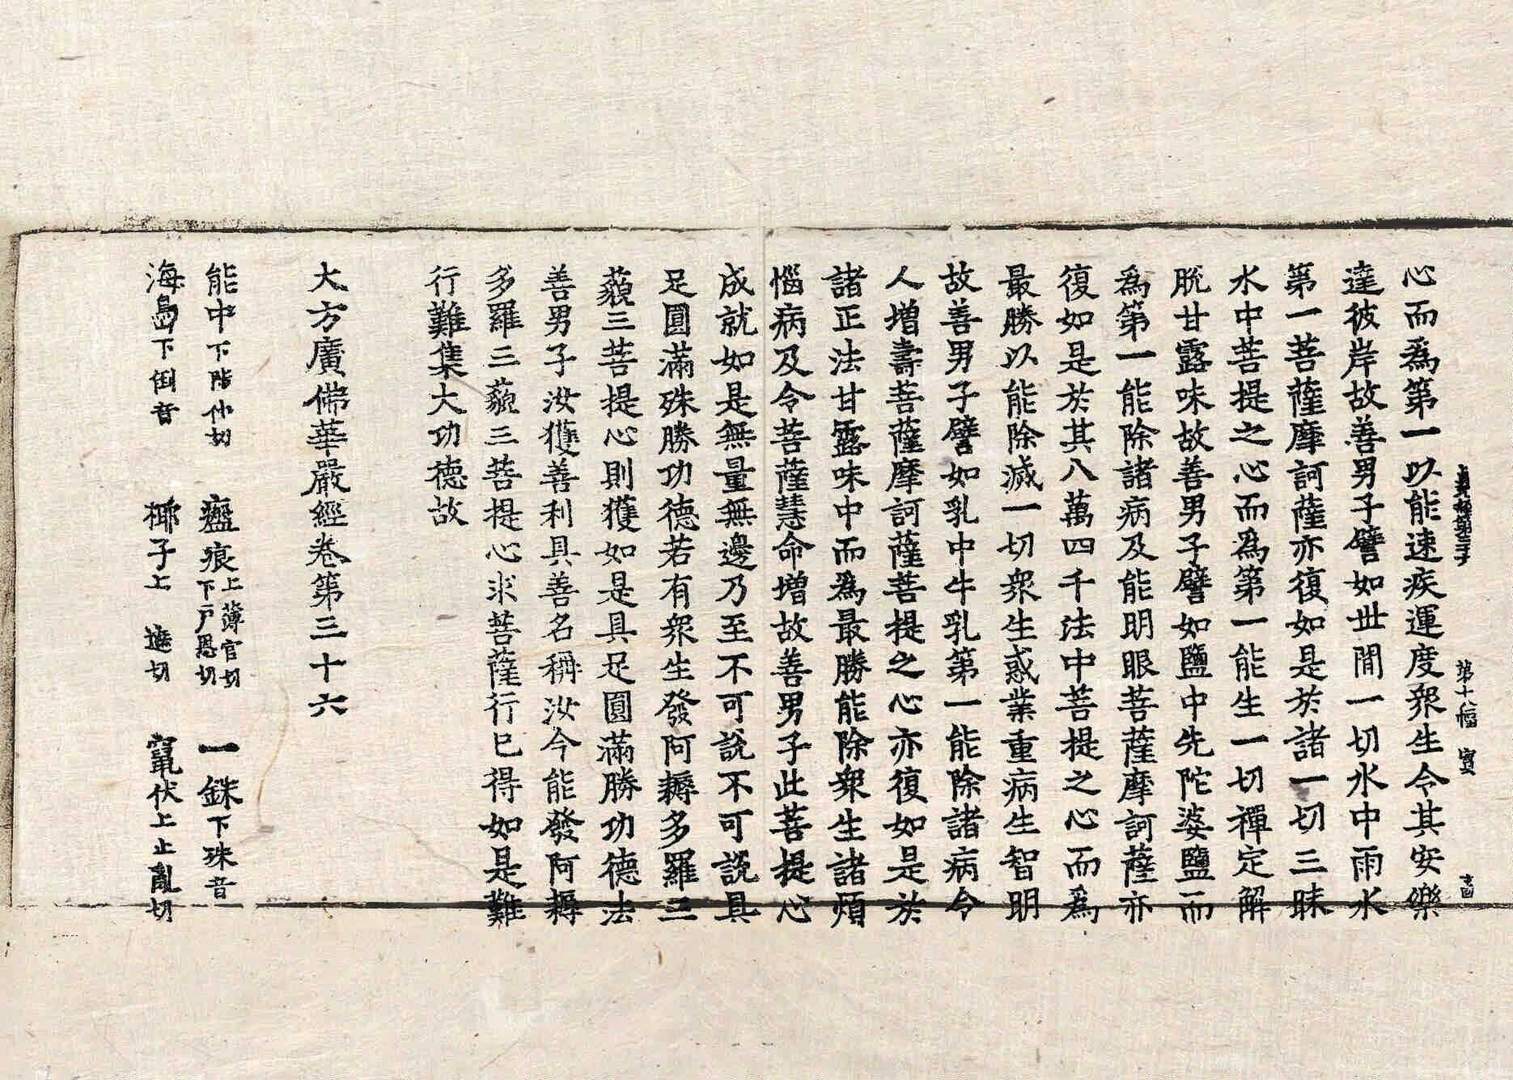 第十八幅
心而爲第一以能速疾運度衆生令其安樂
達彼岸故善男子譬如世間一切水中雨水
第一菩薩摩訶薩亦復如是於諸一切三昧
水中菩提之心而爲第一能生一切禪定解
脫甘露味故善男子譬如鹽中先陀婆鹽而
爲第一能除諸病及能明眼菩薩摩訶薩亦
復如是於其八萬四千法中菩提之心而爲
最勝以能除滅一切衆生惑業重病生智明
故善男子譬如乳中牛乳第一能除諸病令
人增壽菩薩摩訶薩菩提之心亦復如是於
諸正法甘露味中而爲最勝能除衆生諸煩
惱病及令菩薩慧命增故善男子此菩提心
成就如是無量無邊乃至不可說不可說具
足圓滿殊勝功德若有衆生發阿耨多羅三
藐三菩提心則獲如是具足圓滿勝功德法
善男子汝獲善利具善名稱汝今能發阿耨
多羅三藐三菩提心求菩薩行已得如是難
行難集大功德故
大方廣佛華嚴經卷第三十六
能中下階仙切 瘢痕上薄官切下戸恩切 一銖下殊音
海島下倒音 椰子上遮切 竄伏上七亂切